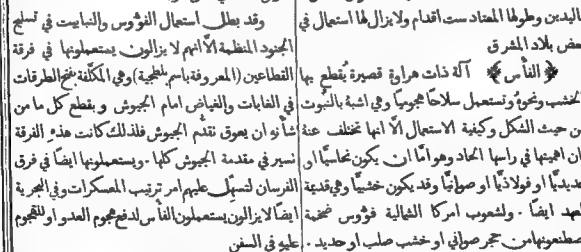 اليدين وطولها المعتاد ست اقدام ولا يزال لها استعمال في
بعض بلاد المشرق
﴿ الفأس ﴾ آلة ذات هراوة قصيرة يُقطع بها
الخشب ونحوهُ وتستعمل سلاحًا هجوميًا وهي اشبة بالنبُّوت
من حيث الشكل وكيفية الاستعمال الَّا انها تختلف عنهُ
ان اهميتها في راسها الحاد وهو امَّا ان يكون نحاسيًا او
حديديًا او فولاذيًا او صوانيًا وقد يكون خشبيًا وهي قديمة
العهد ايضًا . ولشعوب امركا الشمالية فؤوس ضخمة
يصطنعونها من حجر صواني او خشب صلب او حديد .
وقد بطل استعمال الفؤوس والنبابيت في تسليح
الجنود المنظمة الَّا انهم لا يزالون يستعملونها في فرقة
القطاعين (المعروفة باسم بلطجية) وهي المكلَّفة بفتح الطرقات
في الغابات والغياض امام الجيوش و بقطع كل ما من
شأنهِ ان يعوق تقدُّم الجيوش فلذلك كانت هذهِ الفرقة
تسير في مقدمة الجيوش كلها . ويستعملونها ايضًا في فرق
الفرسان لتسهِّل عليهم امر ترتيب المعسكرات وفي البحرية
ايضًا لا يزالون يستعملون الفأس لدفع هجوم العدو او للهجوم
عليهِ في السفن